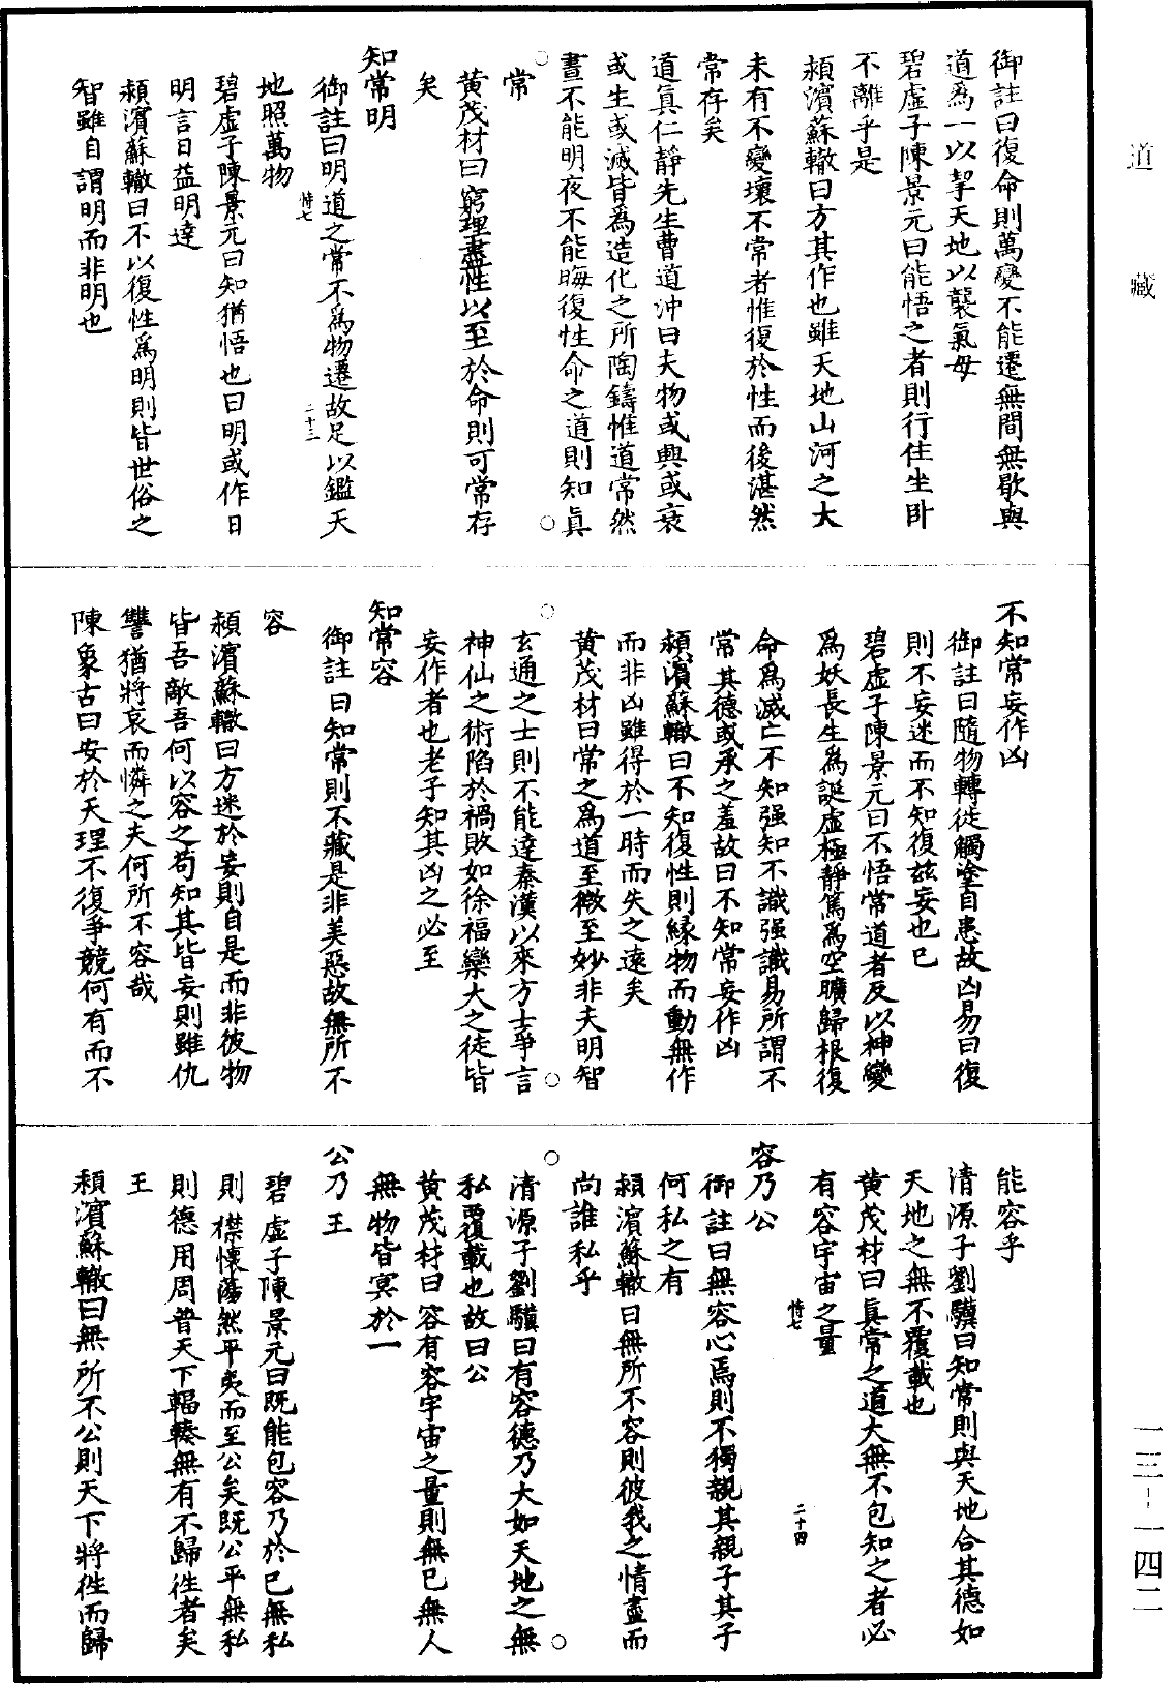 道藏
御註曰復命則萬變不能遷無間無歇與
道爲一以挈天地以襲氣母
碧虛子陳景元曰能悟之者則行住坐卧
不離乎是
頴濱蘇轍曰方其作也雖天地山河之大
未有不變壞不常者惟復於性而後湛然
常存矣
道眞仁靜先生曹道沖曰夫物或興或衰
或生或滅皆爲造化之所陶鑄惟道常然
晝不能明夜不能晦復性命之道則知眞
常
黄茂材曰窮理盡性以至於命則可常存
矣
知常明
御註曰明道之常不爲物遷故足以鑑天
恃七
二十三
地照萬物
碧虛子陳景元曰知猶悟也曰明或作日
明言日益明達
頴濱蘇轍曰不以復性爲明則皆世俗之
智雖自謂明而非明也
不知常妄作凶
御註曰隨物轉徙觸塗自患故凶易曰復
則不妄迷而不知復兹妄也已
碧虛子陳景元曰不悟常道者反以神變
爲妖長生爲誕虛極靜篤爲空曠歸根復
命爲滅亡不知强知不識强識易所謂不
常其德或承之羞故曰不知常妄作凶
頴濱蘇轍曰不知復性則緣物而動無作
而非凶雖得於一時而失之遠矣
黄茂材曰常之爲道至微至妙非夫明智
玄通之士則不能達秦漢以來方士爭言
神仙之術陷於禍敗如徐福欒大之徒皆
妄作者也老子知其凶之必至
知常容
御註曰知常則不藏是非美惡故無所不
容
頴濱蘇轍曰方迷於妄則自是而非彼物
皆吾敵吾何以容之苟知其皆妄則雖仇
讐猶將哀而憐之夫何所不容哉
陳象古曰安於天理不復爭競何有而不
能容乎
清源子劉驥曰知常則與天地合其德如
天地之無不覆載也
黄茂材曰眞常之道大無不包知之者必
有容宇宙之量
恃七
二十四
容乃公
御註曰無容心焉則不獨親其親子其子
何私之有
頴濱蘇轍曰無所不容則彼我之情盡而
尚誰私乎
清源子劉驥曰有容德乃大如天地之無
私覆載也故曰公
黄茂材曰容有容宇宙之量則無已無人
無物皆冥於一
公乃王
碧虛子陳景元曰既能包容乃於已無私
則襟懷蕩然平夷而至公矣既公平無私
則德用周普天下輻輳無有不歸徃者矣
王
頴濱蘇轍曰無所不公則天下將徃而歸
一三-一四二